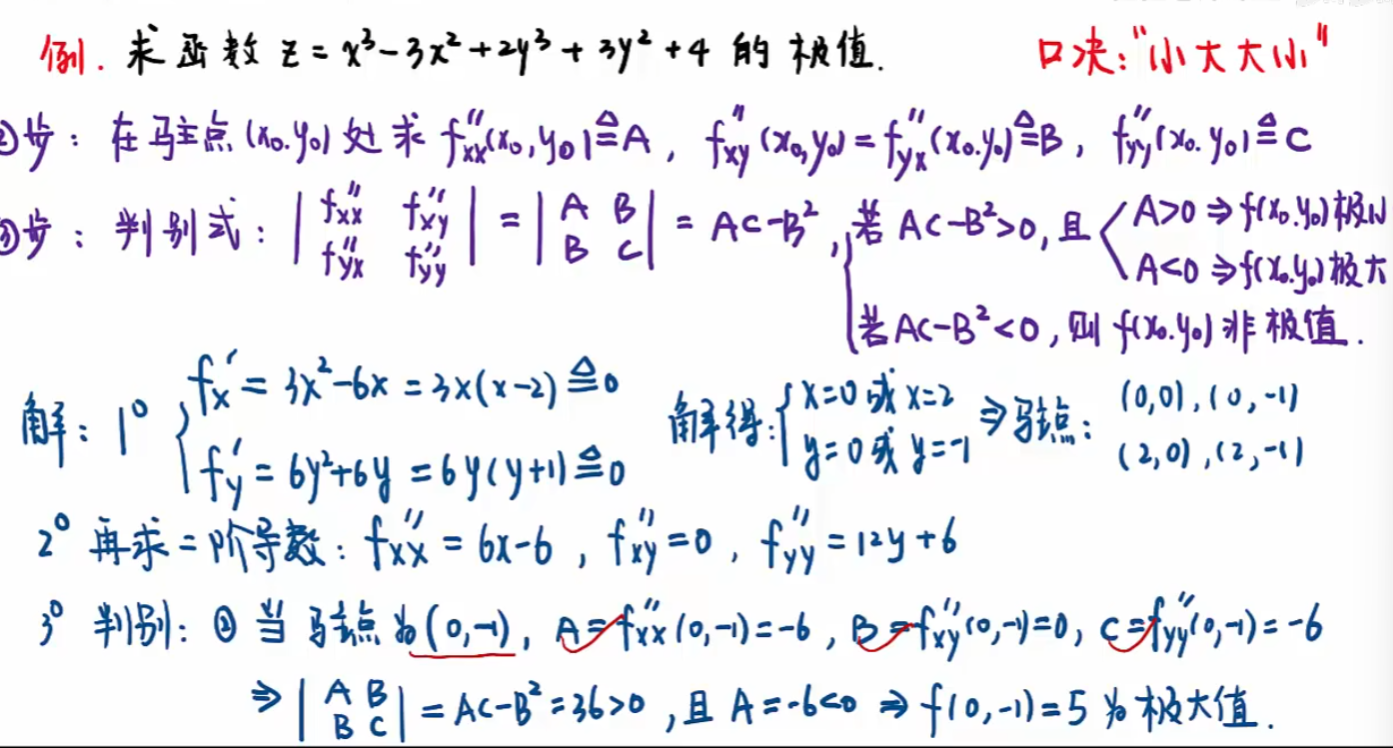 例. 求函数 z = x³-3x²+2y³+3y²+4 的极值. 口决:"小大大小"
②步: 在驻点(x₀.y₀)处求 f''xx(x₀,y₀)≜A, f''xy(x₀,y₀)=f''yx(x₀.y₀)≜B, f''yy(x₀.y₀)≜C
③步: 判别式: | f''xx f''xy | = | A B | = AC-B², 若 AC-B²>0, 且 A>0 ⇒ f(x₀.y₀)极小
| f''yx f''yy | | B C | A<0 ⇒ f(x₀.y₀)极大
若AC-B²<0, 则 f(x₀.y₀)非极值.
解: 1° { f'x = 3x²-6x = 3x(x-2) ≜ 0 解得: { x=0 或 x=2 ⇒ 驻点: (0,0), (0,-1)
f'y = 6y²+6y = 6y(y+1) ≜ 0 y=0 或 y=-1 (2,0), (2,-1)
2° 再求二阶导数: f''xx = 6x-6, f''xy = 0, f''yy = 12y+6
3° 判别: ② 当驻点为(0,-1), A=f''xx(0,-1)=-6, B=f''xy(0,-1)=0, C=f''yy(0,-1)=-6
⇒ | A B | = AC-B²=36>0, 且 A=-6<0 ⇒ f(0,-1)=5 为极大值.
| B C |